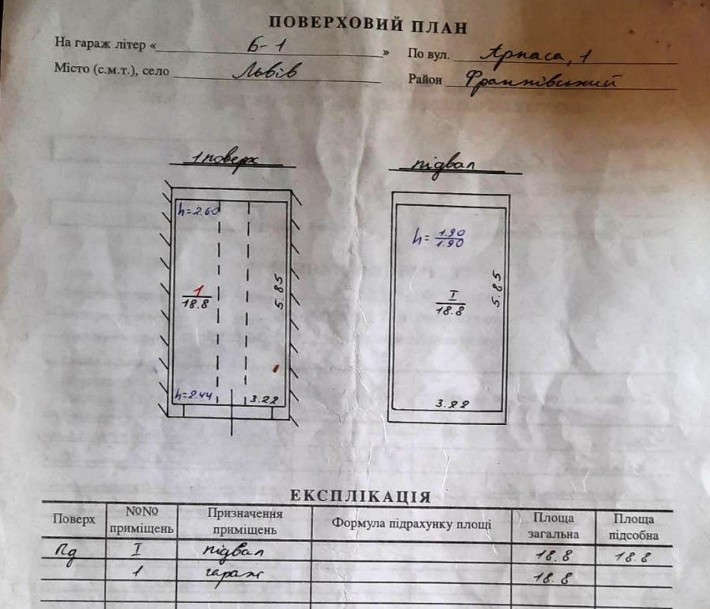 ПОВЕРХОВИЙ ПЛАН
На гараж літер « Б-1 » По вул. Арнаса, 1
Місто (с.м.т.), село Львів Район Франківський
1 поверх підвал
h=2.60
h= 1.90/1.90
1/18.8 5.85
I/18.8 5.85
h=2.44 3.22 3.22
ЕКСПЛІКАЦІЯ
Поверх №№ приміщень Призначення приміщень Формула підрахунку площі Площа загальна Площа підсобна
Пд I підвал 18.8 18.8
1 гараж 18.8